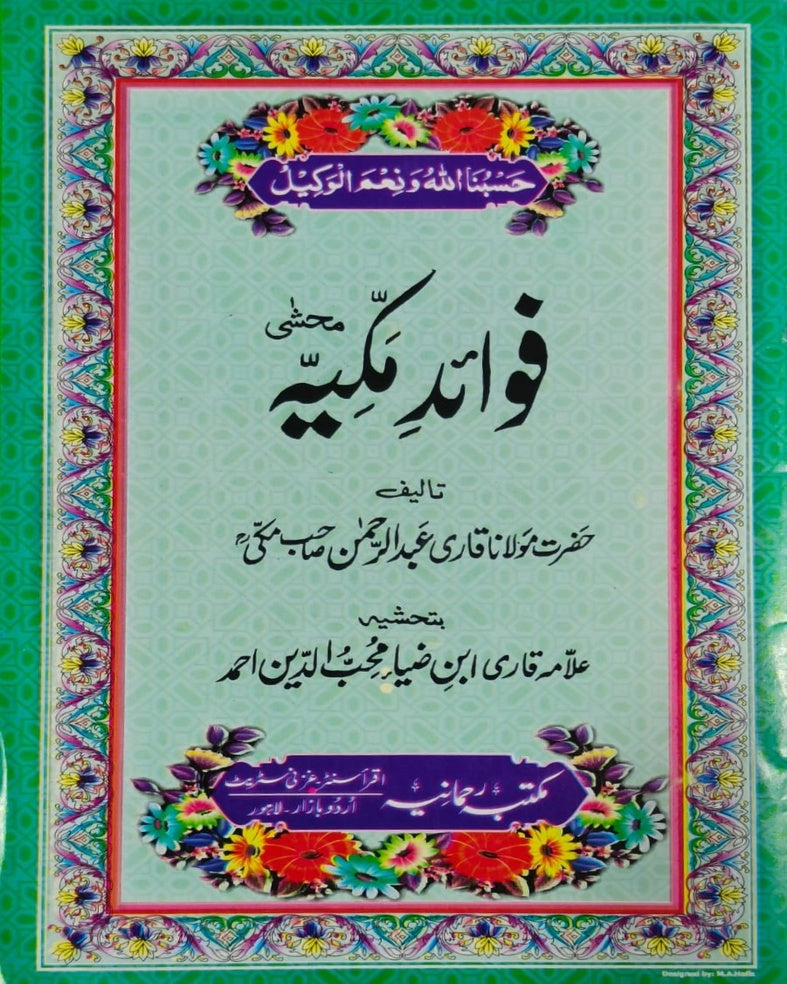 حَسْبُنَا اللّٰهُ وَنِعْمَ الْوَكِيْلُ
فوائدِ مَکِّیہّ محشٰی
تالیف
حضرت مولانا قاری عَبدالرّحمٰن صاحب مکّیؒ
بتحشیہ
علاّمہ قاری ابنِ ضیاء مُحبُّ الدّین احمد
مکتبہ رحمانیہ
اقرأ سنٹر غزنی سٹریٹ
اُردو بازار۔ لاہور
Designed by: M.A.Hafiz